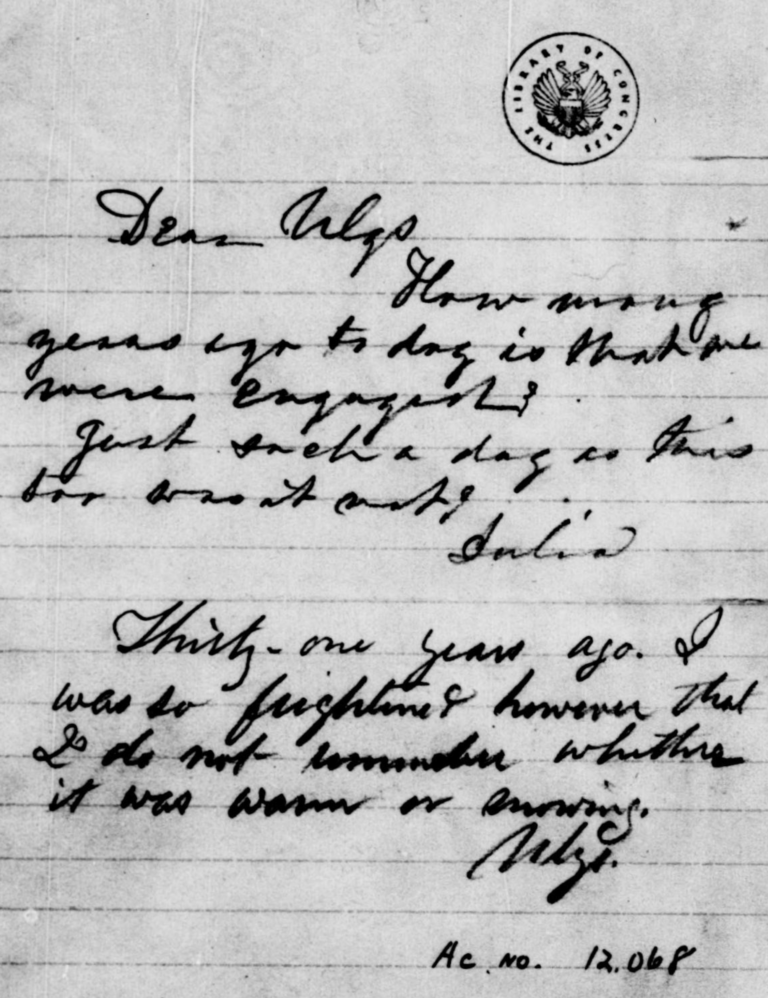 THE LIBRARY OF CONGRESS
Dear Ulys
How many
years ago to day is that we
were engaged?
Just such a day as this
too was it not?
Julia
Thirty-one years ago. I
was so frightened however that
I do not remember whether
it was warm or snowing.
Ulys.
Ac. no. 12.068